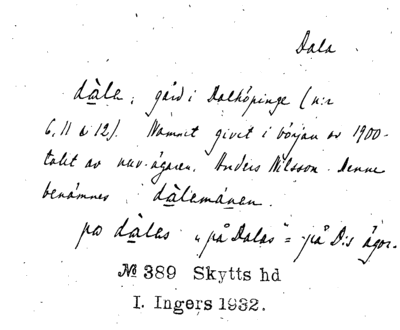 Dala
dàla, gård i Dalköpinge (n:r
6, 11 o 12). Namnet givet i början av 1900-
talet av nuv. ägaren, Anders Nilsson. Denne
benämnes dàlamánen.
po dàlas "på Dalas" = på D:s ägor.
№ 389 Skytts hd
I. Ingers 1932.